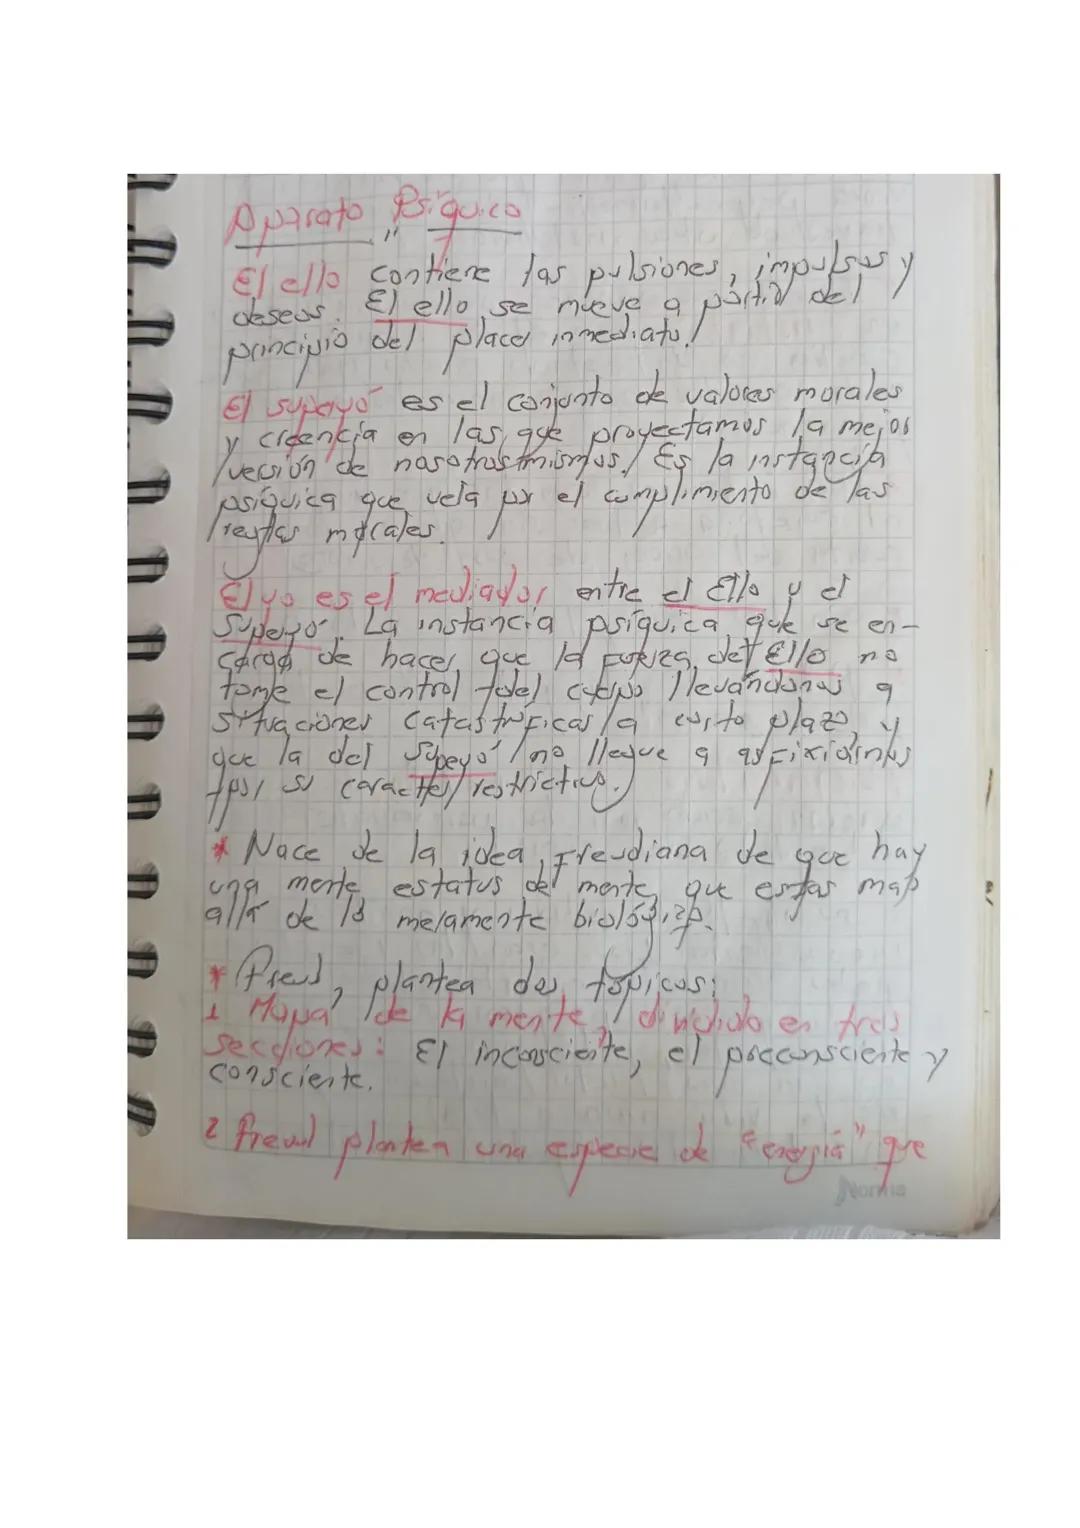 Aparato Psíquico
El ello contiene las pulsiones, impulsos y
deseos. El ello se mueve a partir del
principio del placer inmediato.
El superyó es el conjunto de valores morales
y creencia en las que proyectamos la mejor
versión de nosotros mismos. Es la instancia
psíquica que vela por el cumplimiento de las
reglas morales.
El yo es el mediador entre el Ello y el
Superyó. La instancia psíquica que se en-
carga de hacer que la fuerza del Ello no
tome el control del cuerpo llevándonos a
situaciones catastróficas a corto plazo, y
que la del Supeyó no llegue a asfixiarnos
por su caracter restrictivo.
* Nace de la idea Freudiana de que hay
una mente estatus de mente que estas mas
alla de la meramente
* Freud, plantea dos tópicos:
1 Mapa de la mente, dividido en tres
secciones: El inconsciente, el preconsciente y
consciente.
2 Freud plantea una especie de "energía" que
Norma